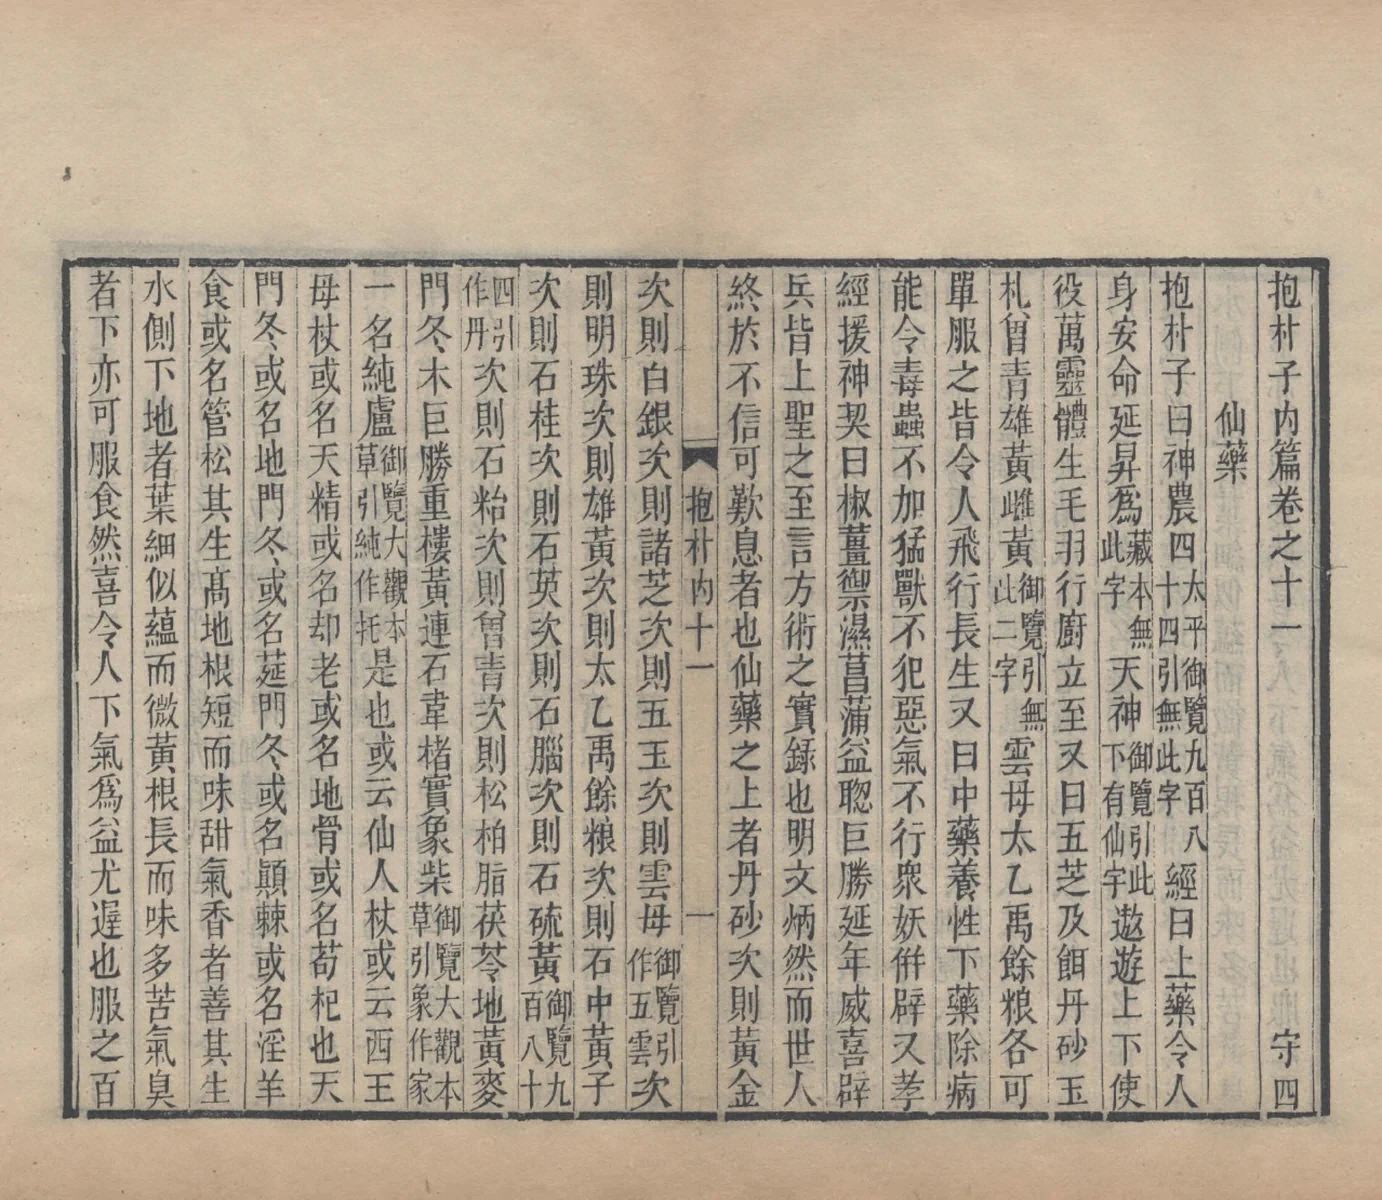 抱朴子內篇卷之十一　守四
仙藥
抱朴子曰神農四太平御覽九百八十四引無此字經曰上藥令人
身安命延昇爲藏本無此字天神御覽引此下有仙字遨遊上下使
役萬靈體生毛羽行廚立至又曰五芝及餌丹砂玉
札曾青雄黃雌黃御覽引無此二字雲母太乙禹餘粮各可
單服之皆令人飛行長生又曰中藥養性下藥除病
能令毒蟲不加猛獸不犯惡氣不行衆妖併辟又孝
經援神契曰椒薑禦濕菖蒲益聰巨勝延年威喜辟
兵皆上聖之至言方術之實錄也明文炳然而世人
終於不信可歎息者也仙藥之上者丹砂次則黃金
抱朴內十一　一
次則白銀次則諸芝次則五玉次則雲母御覽引作五雲次
則明珠次則雄黃次則太乙禹餘粮次則石中黃子
次則石桂次則石英次則石腦次則石硫黃御覽九百八十
四引作丹次則石粘次則曾青次則松柏脂茯苓地黃麥
門冬木巨勝重樓黃連石韋楮實象柴御覽大觀本草引象作家
一名純盧御覽大觀本草引純作托是也或云仙人杖或云西王
母杖或名天精或名却老或名地骨或名苟杞也天
門冬或名地門冬或名莚門冬或名顚棘或名淫羊
食或名管松其生高地根短而味甜氣香者善其生
水側下地者葉細似蘊而微黃根長而味多苦氣臭
者下亦可服食然喜令人下氣爲益尤遲也服之百